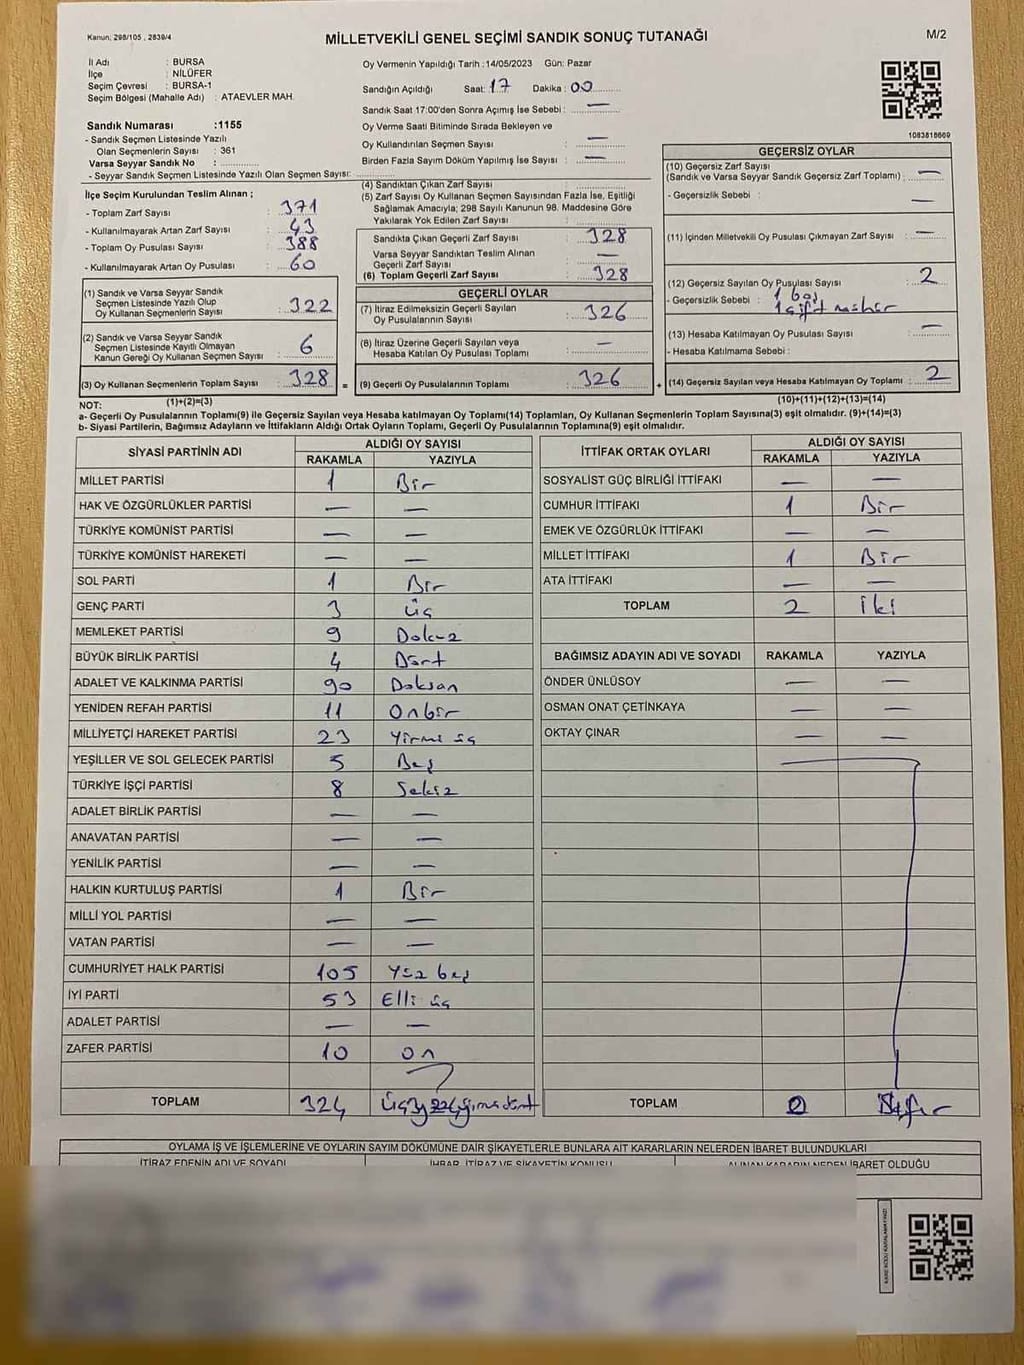 Kanun: 298/105 , 2839/4
MİLLETVEKİLİ GENEL SEÇİMİ SANDIK SONUÇ TUTANAĞI
M/2
İl Adı : BURSA
İlçe : NİLÜFER
Seçim Çevresi : BURSA-1
Seçim Bölgesi (Mahalle Adı) : ATAEVLER MAH.
Sandık Numarası :1155
- Sandık Seçmen Listesinde Yazılı
Olan Seçmenlerin Sayısı : 361
Varsa Seyyar Sandık No :
- Seyyar Sandık Seçmen Listesinde Yazılı Olan Seçmen Sayısı:
Oy Vermenin Yapıldığı Tarih :14/05/2023 Gün: Pazar
Sandığın Açıldığı Saat: 17 Dakika : 00
Sandık Saat 17:00'den Sonra Açımış İse Sebebi : —
Oy Verme Saati Bitiminde Sırada Bekleyen ve
Oy Kullandırılan Seçmen Sayısı : —
Birden Fazla Sayım Döküm Yapılmış İse Sayısı : —
1083818669
İlçe Seçim Kurulundan Teslim Alınan ;
- Toplam Zarf Sayısı : 371
- Kullanılmayarak Artan Zarf Sayısı : 43
- Toplam Oy Pusulası Sayısı : 388
- Kullanılmayarak Artan Oy Pusulası : 60
(1) Sandık ve Varsa Seyyar Sandık
Seçmen Listesinde Yazılı Olup
Oy Kullanan Seçmenlerin Sayısı : 322
(2) Sandık ve Varsa Seyyar Sandık
Seçmen Listesinde Kayıtlı Olmayan
Kanun Gereği Oy Kullanan Seçmen Sayısı : 6
(3) Oy Kullanan Seçmenlerin Toplam Sayısı : 328 =
(1)+(2)=(3)
(4) Sandıktan Çıkan Zarf Sayısı :
(5) Zarf Sayısı Oy Kullanan Seçmen Sayısından Fazla İse, Eşitliği
Sağlamak Amacıyla; 298 Sayılı Kanunun 98. Maddesine Göre
Yakılarak Yok Edilen Zarf Sayısı :
Sandıkta Çıkan Geçerli Zarf Sayısı : 328
Varsa Seyyar Sandıktan Teslim Alınan
Geçerli Zarf Sayısı : —
(6) Toplam Geçerli Zarf Sayısı : 328
GEÇERLİ OYLAR
(7) İtiraz Edilmeksizin Geçerli Sayılan
Oy Pusulalarının Sayısı : 326
(8) İtiraz Üzerine Geçerli Sayılan veya
Hesaba Katılan Oy Pusulası Toplamı : —
(9) Geçerli Oy Pusulalarının Toplamı : 326 +
GEÇERSİZ OYLAR
(10) Geçersiz Zarf Sayısı
(Sandık ve Varsa Seyyar Sandık Geçersiz Zarf Toplamı) : —
- Geçersizlik Sebebi : —
(11) İçinden Milletvekili Oy Pusulası Çıkmayan Zarf Sayısı : —
(12) Geçersiz Sayılan Oy Pusulası Sayısı : 2
- Geçersizlik Sebebi : 1 boş
1 çift mühür
(13) Hesaba Katılmayan Oy Pusulası Sayısı : —
- Hesaba Katılmama Sebebi :
(14) Geçersiz Sayılan veya Hesaba Katılmayan Oy Toplamı : 2
(10)+(11)+(12)+(13)=(14)
NOT:
a- Geçerli Oy Pusulalarının Toplamı(9) ile Geçersiz Sayılan veya Hesaba katılmayan Oy Toplamı(14) Toplamları, Oy Kullanan Seçmenlerin Toplam Sayısına(3) eşit olmalıdır. (9)+(14)=(3)
b- Siyasi Partilerin, Bağımsız Adayların ve İttifakların Aldığı Ortak Oyların Toplamı, Geçerli Oy Pusulalarının Toplamına(9) eşit olmalıdır.
SİYASİ PARTİNİN ADI ALDIĞI OY SAYISI
RAKAMLA YAZIYLA
MİLLET PARTİSİ 1 Bir
HAK VE ÖZGÜRLÜKLER PARTİSİ — —
TÜRKİYE KOMÜNİST PARTİSİ — —
TÜRKİYE KOMÜNİST HAREKETİ — —
SOL PARTİ 1 Bir
GENÇ PARTİ 3 Üç
MEMLEKET PARTİSİ 9 Dokuz
BÜYÜK BİRLİK PARTİSİ 4 Dört
ADALET VE KALKINMA PARTİSİ 90 Doksan
YENİDEN REFAH PARTİSİ 11 Onbir
MİLLİYETÇİ HAREKET PARTİSİ 23 Yirmi üç
YEŞİLLER VE SOL GELECEK PARTİSİ 5 Beş
TÜRKİYE İŞÇİ PARTİSİ 8 Sekiz
ADALET BİRLİK PARTİSİ — —
ANAVATAN PARTİSİ — —
YENİLİK PARTİSİ — —
HALKIN KURTULUŞ PARTİSİ 1 Bir
MİLLİ YOL PARTİSİ — —
VATAN PARTİSİ — —
CUMHURİYET HALK PARTİSİ 105 Yüz beş
İYİ PARTİ 53 Elli üç
ADALET PARTİSİ — —
ZAFER PARTİSİ 10 On
TOPLAM 324
İTTİFAK ORTAK OYLARI ALDIĞI OY SAYISI
RAKAMLA YAZIYLA
SOSYALİST GÜÇ BİRLİĞİ İTTİFAKI — —
CUMHUR İTTİFAKI 1 Bir
EMEK VE ÖZGÜRLÜK İTTİFAKI — —
MİLLET İTTİFAKI 1 Bir
ATA İTTİFAKI — —
TOPLAM 2 İki
BAĞIMSIZ ADAYIN ADI VE SOYADI RAKAMLA YAZIYLA
ÖNDER ÜNLÜSOY — —
OSMAN ONAT ÇETİNKAYA — —
OKTAY ÇINAR — —
TOPLAM 0 Sıfır
OYLAMA İŞ VE İŞLEMLERİNE VE OYLARIN SAYIM DÖKÜMÜNE DAİR ŞİKAYETLERLE BUNLARA AİT KARARLARIN NELERDEN İBARET BULUNDUKLARI
İTİRAZ EDENİN ADI VE SOYADI İHBAR, İTİRAZ VE ŞİKAYETİN KONUSU ALINAN KARARIN NEDEN İBARET OLDUĞU